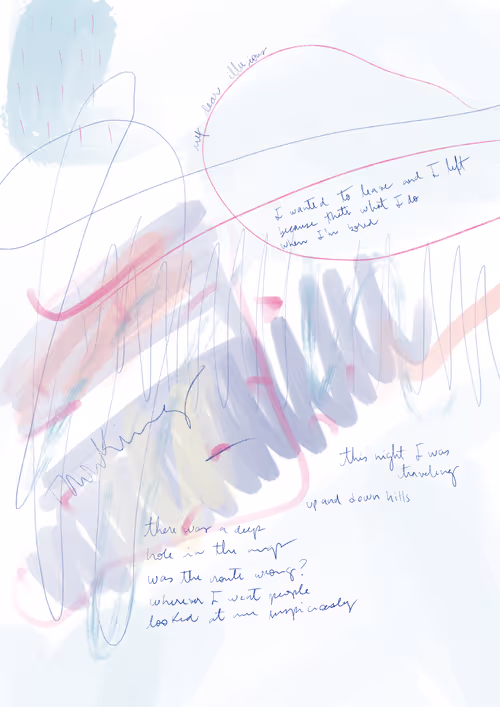 I wanted to leave and I left
because thats what I do
when I'm bored
this night I was
traveling
up and down hills
there was a deep
hole in the map
was the route wrong?
wherever I went people
looked at me suspiciously